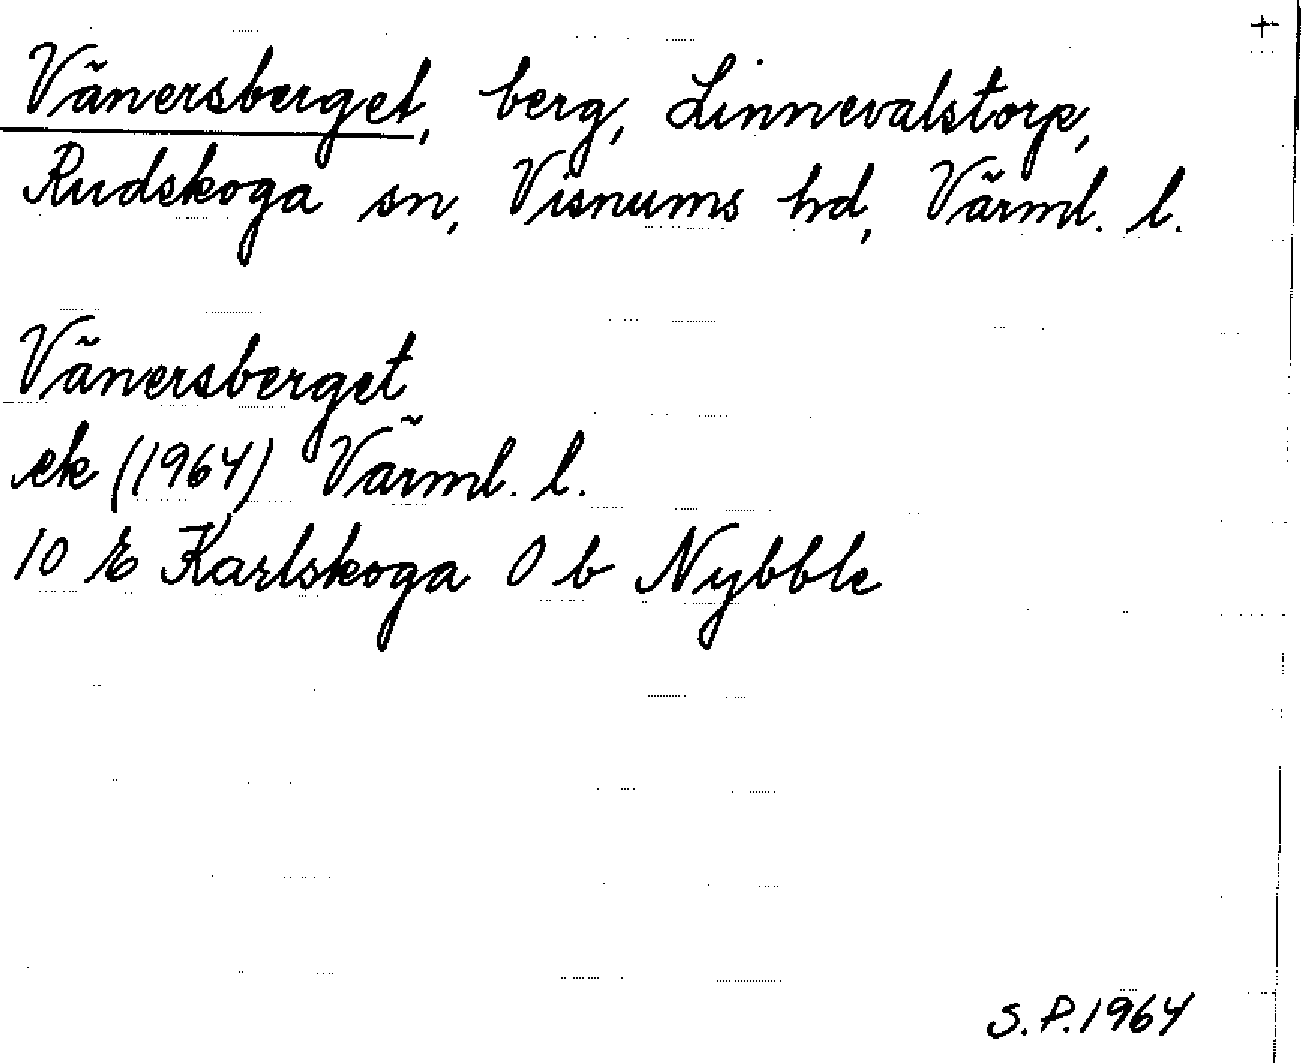 +
Vänersberget, berg, Linnevalstorp,
Rudskoga sn, Visnums hd, Värml. l.
Vänersberget
ek (1964) Värml. l.
10 E Karlskoga 0 b Nybble
S.P. 1964